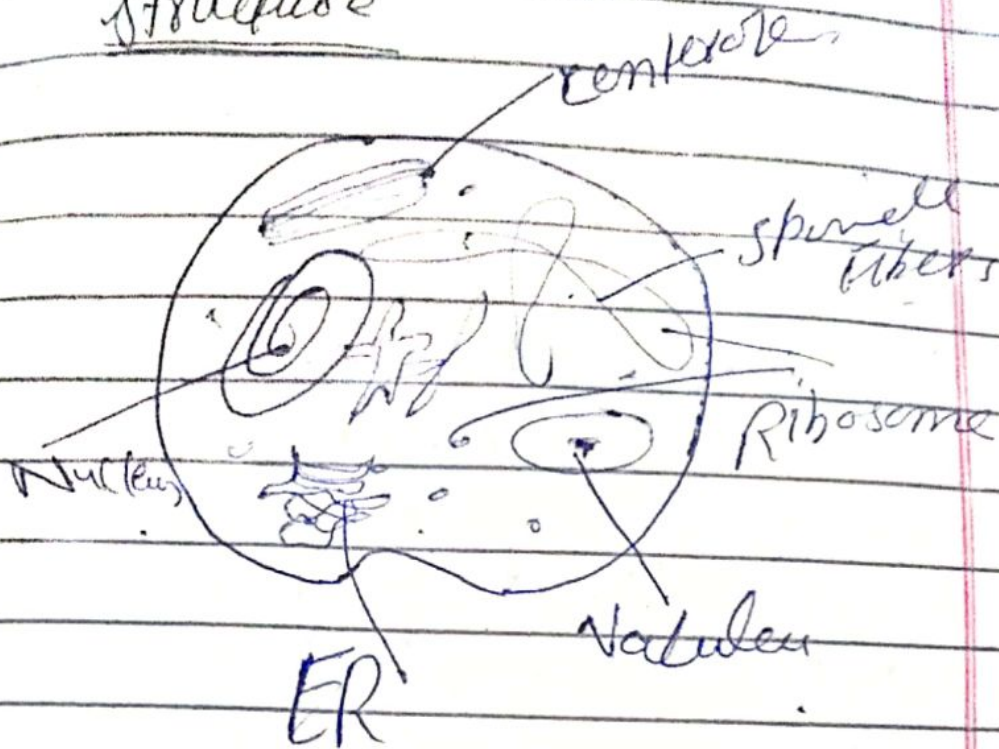 Structure
centeriole
spinell
fibers
Ribosome
Nucleus
ER